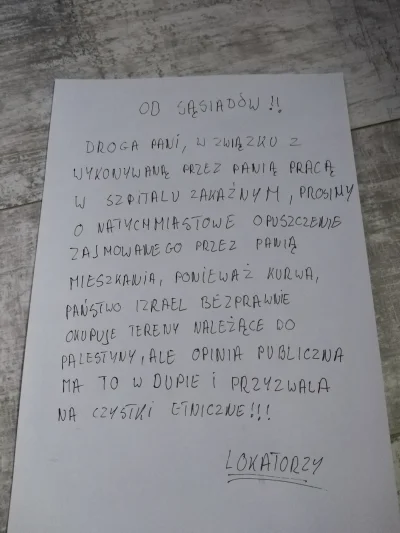 OD SĄSIADÓW!!
DROGA PANI, W ZWIĄZKU Z
WYKONYWANĄ PRZEZ PANIĄ PRACĄ
W SZPITALU ZAKAŹNYM, PROSIMY
O NATYCHMIASTOWE OPUSZCZENIE
ZAJMOWANEGO PRZEZ PANIĄ
MIESZKANIA, PONIEWAŻ KURWA,
PAŃSTWO IZRAEL BEZPRAWNIE
OKUPUJE TERENY NALEŻĄCE DO
PALESTYNY, ALE OPINIA PUBLICZNA
MA TO W DUPIE I PRZYZWALA
NA CZYSTKI ETNICZNE!!!
LOKATORZY